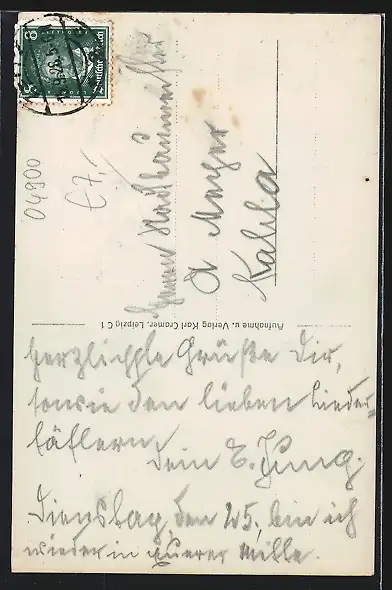 8
Deutsches Reich
04900
£7,-
Herrn
A Meyer
Kahla
Aufnahme u. Verlag Karl Cramer, Leipzig C 1
Herzlichste Grüße Dir,
sowie den lieben Lieder=
täflern.
Dein E. Jung.
Dienstag den 25, bin ich
wieder in Eurer Mitte.